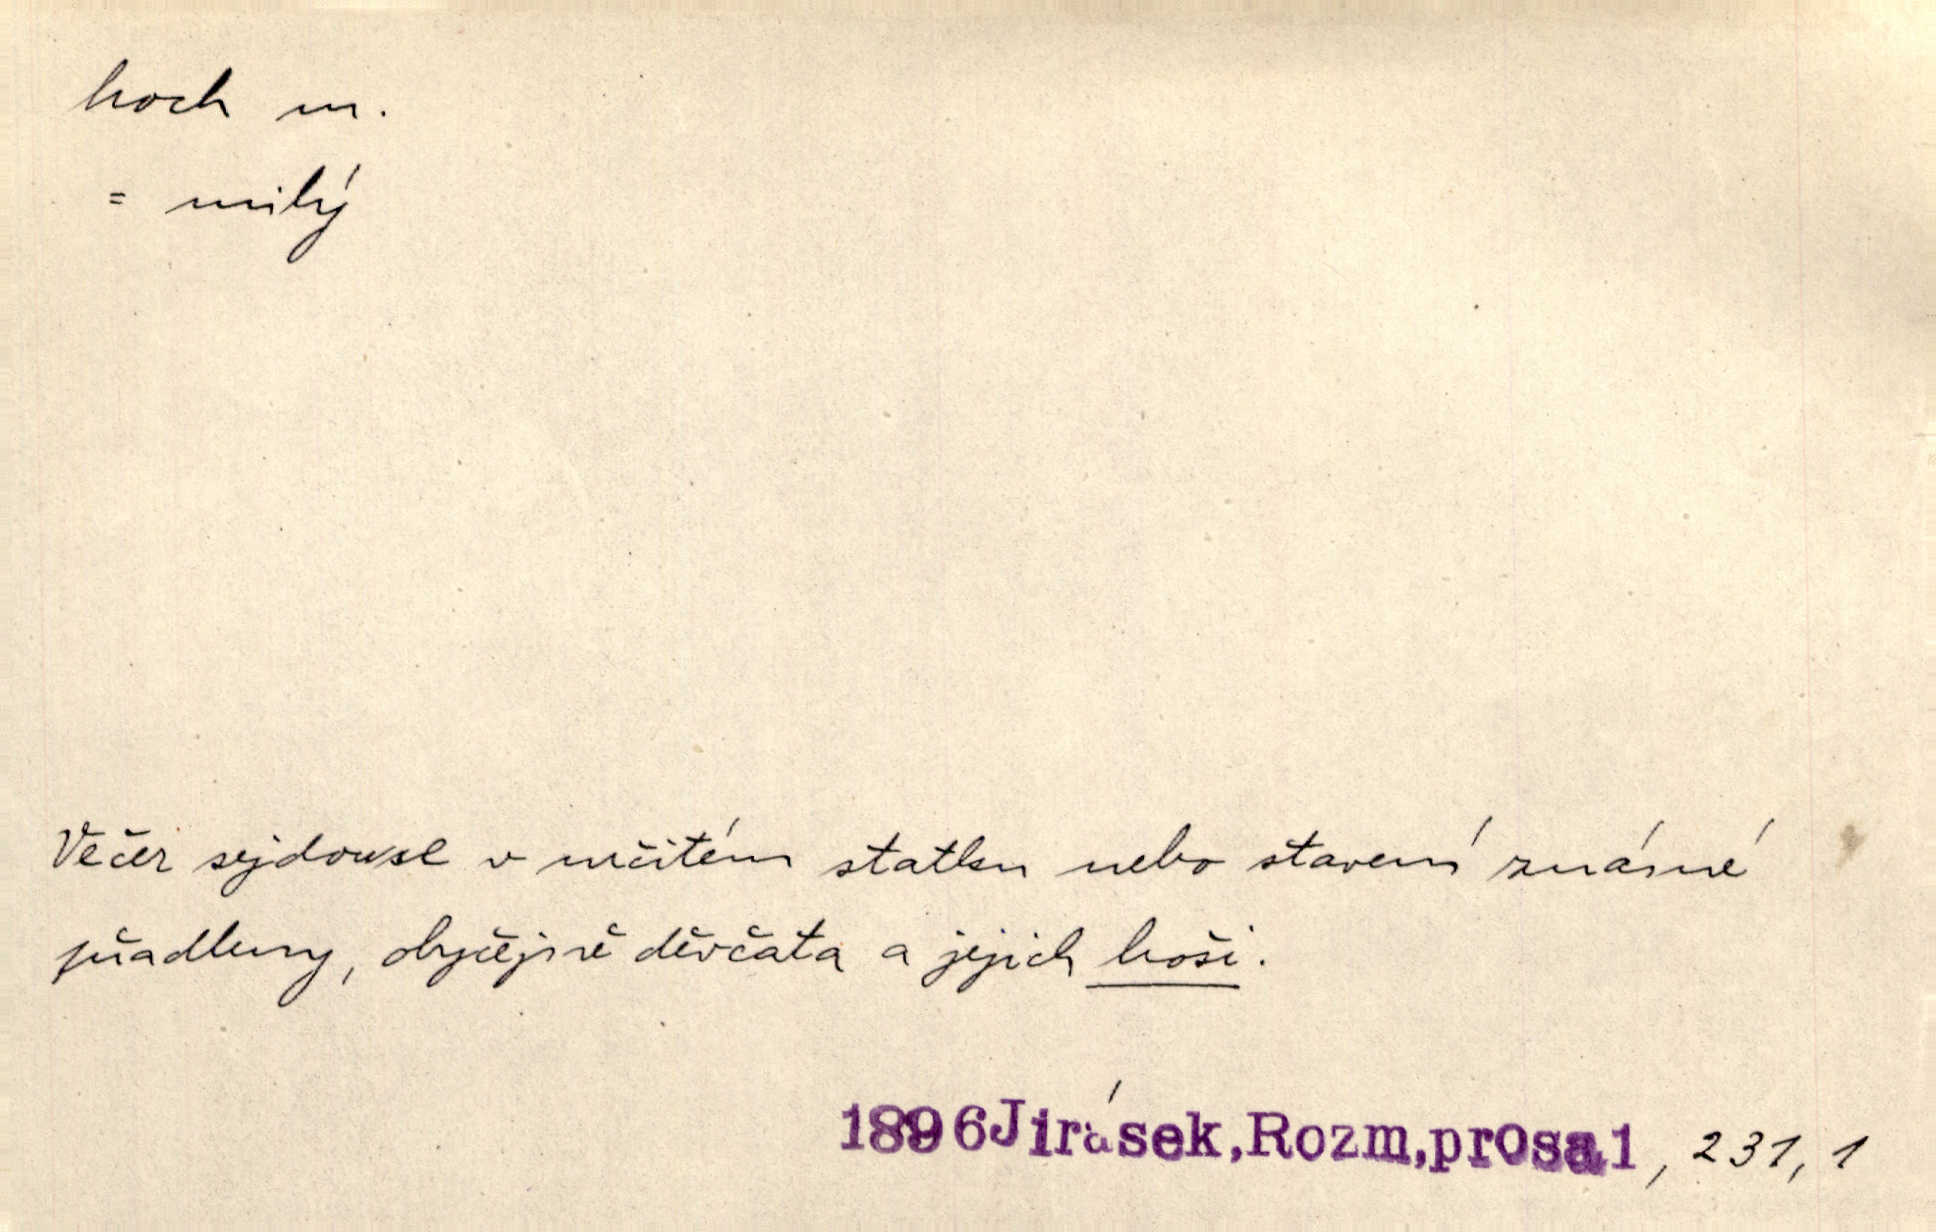 hoch m.
= milý
Večer sejdou se v určitém statku nebo stavení známé
přadleny, obyčejně děvčata a jejich hoši.
1896 Jirásek, Rozm, prosa 1, 231, 1